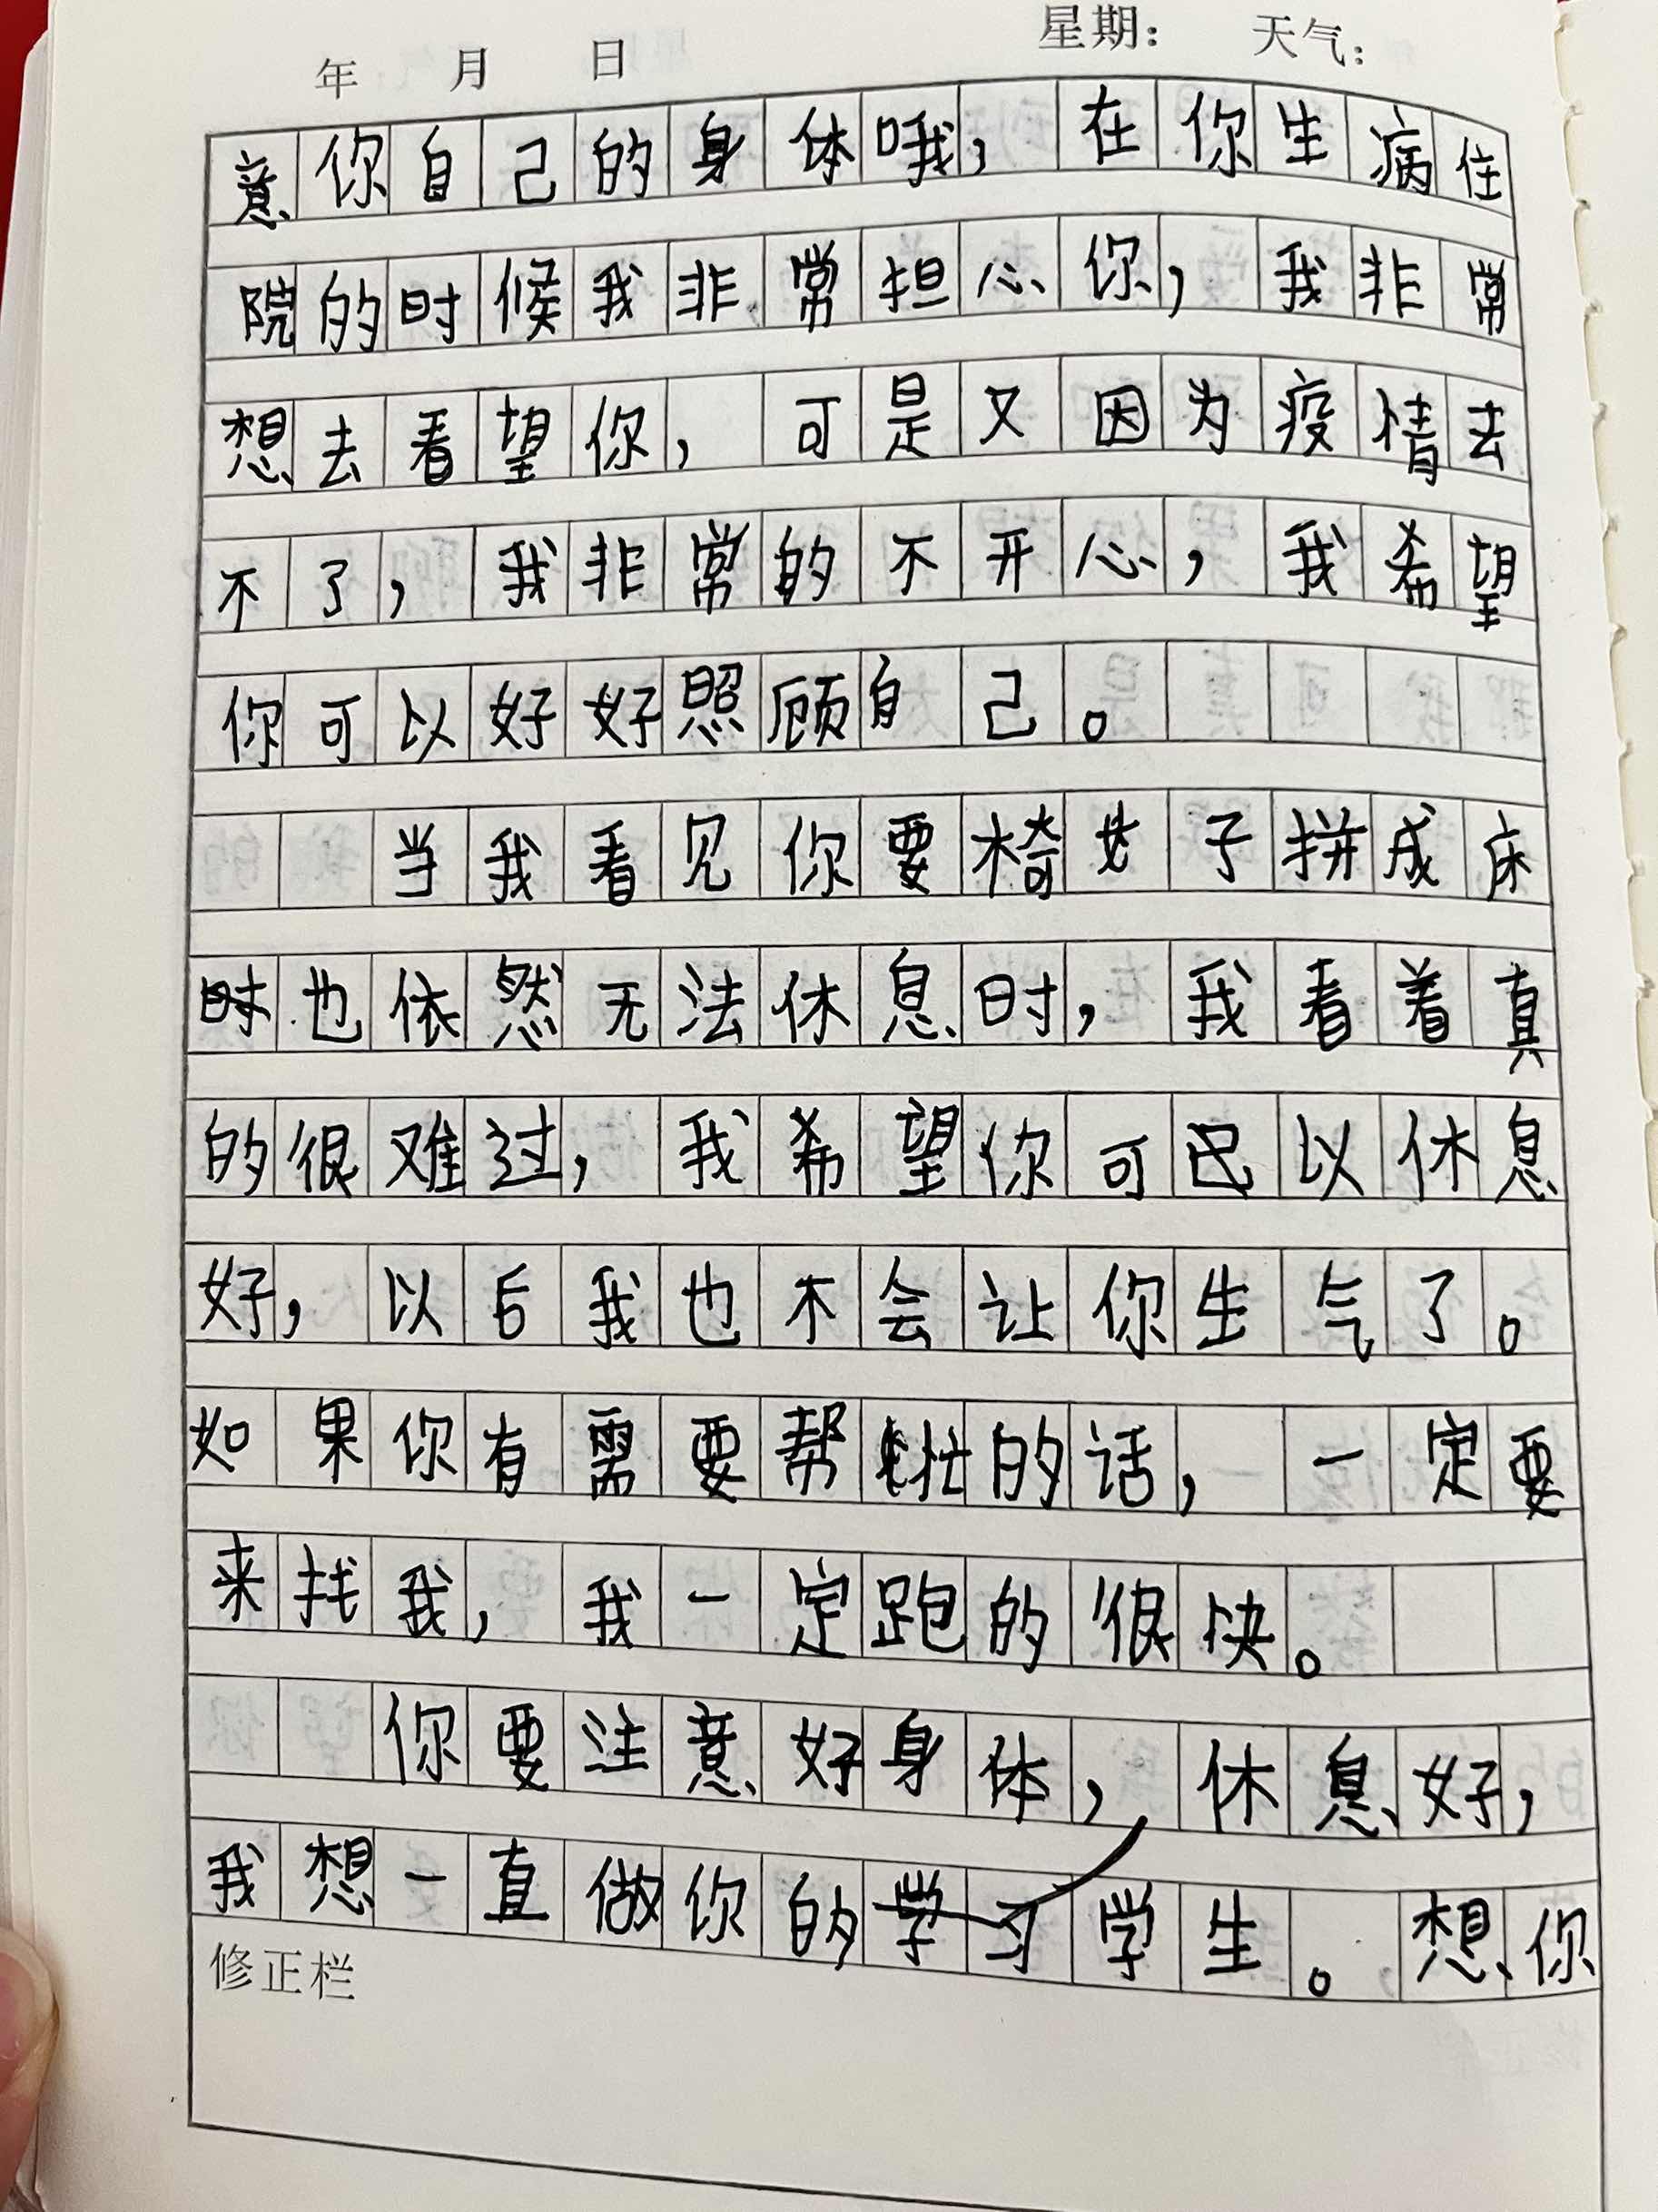 年 月 日 星期: 天气:
意你自己的身体哦，在你生病住
院的时候我非常担心你，我非常
想去看望你，可是又因为疫情去
不了，我非常的不开心，我希望
你可以好好照顾自己。
当我看见你要椅子拼成床
时也依然无法休息时，我看着真
的很难过，我希望你可以休息
好，以后我也不会让你生气了。
如果你有需要帮忙的话，一定要
来找我，我一定跑的很快。
你要注意好身体，休息好，
我想一直做你的学习学生。想你
修正栏